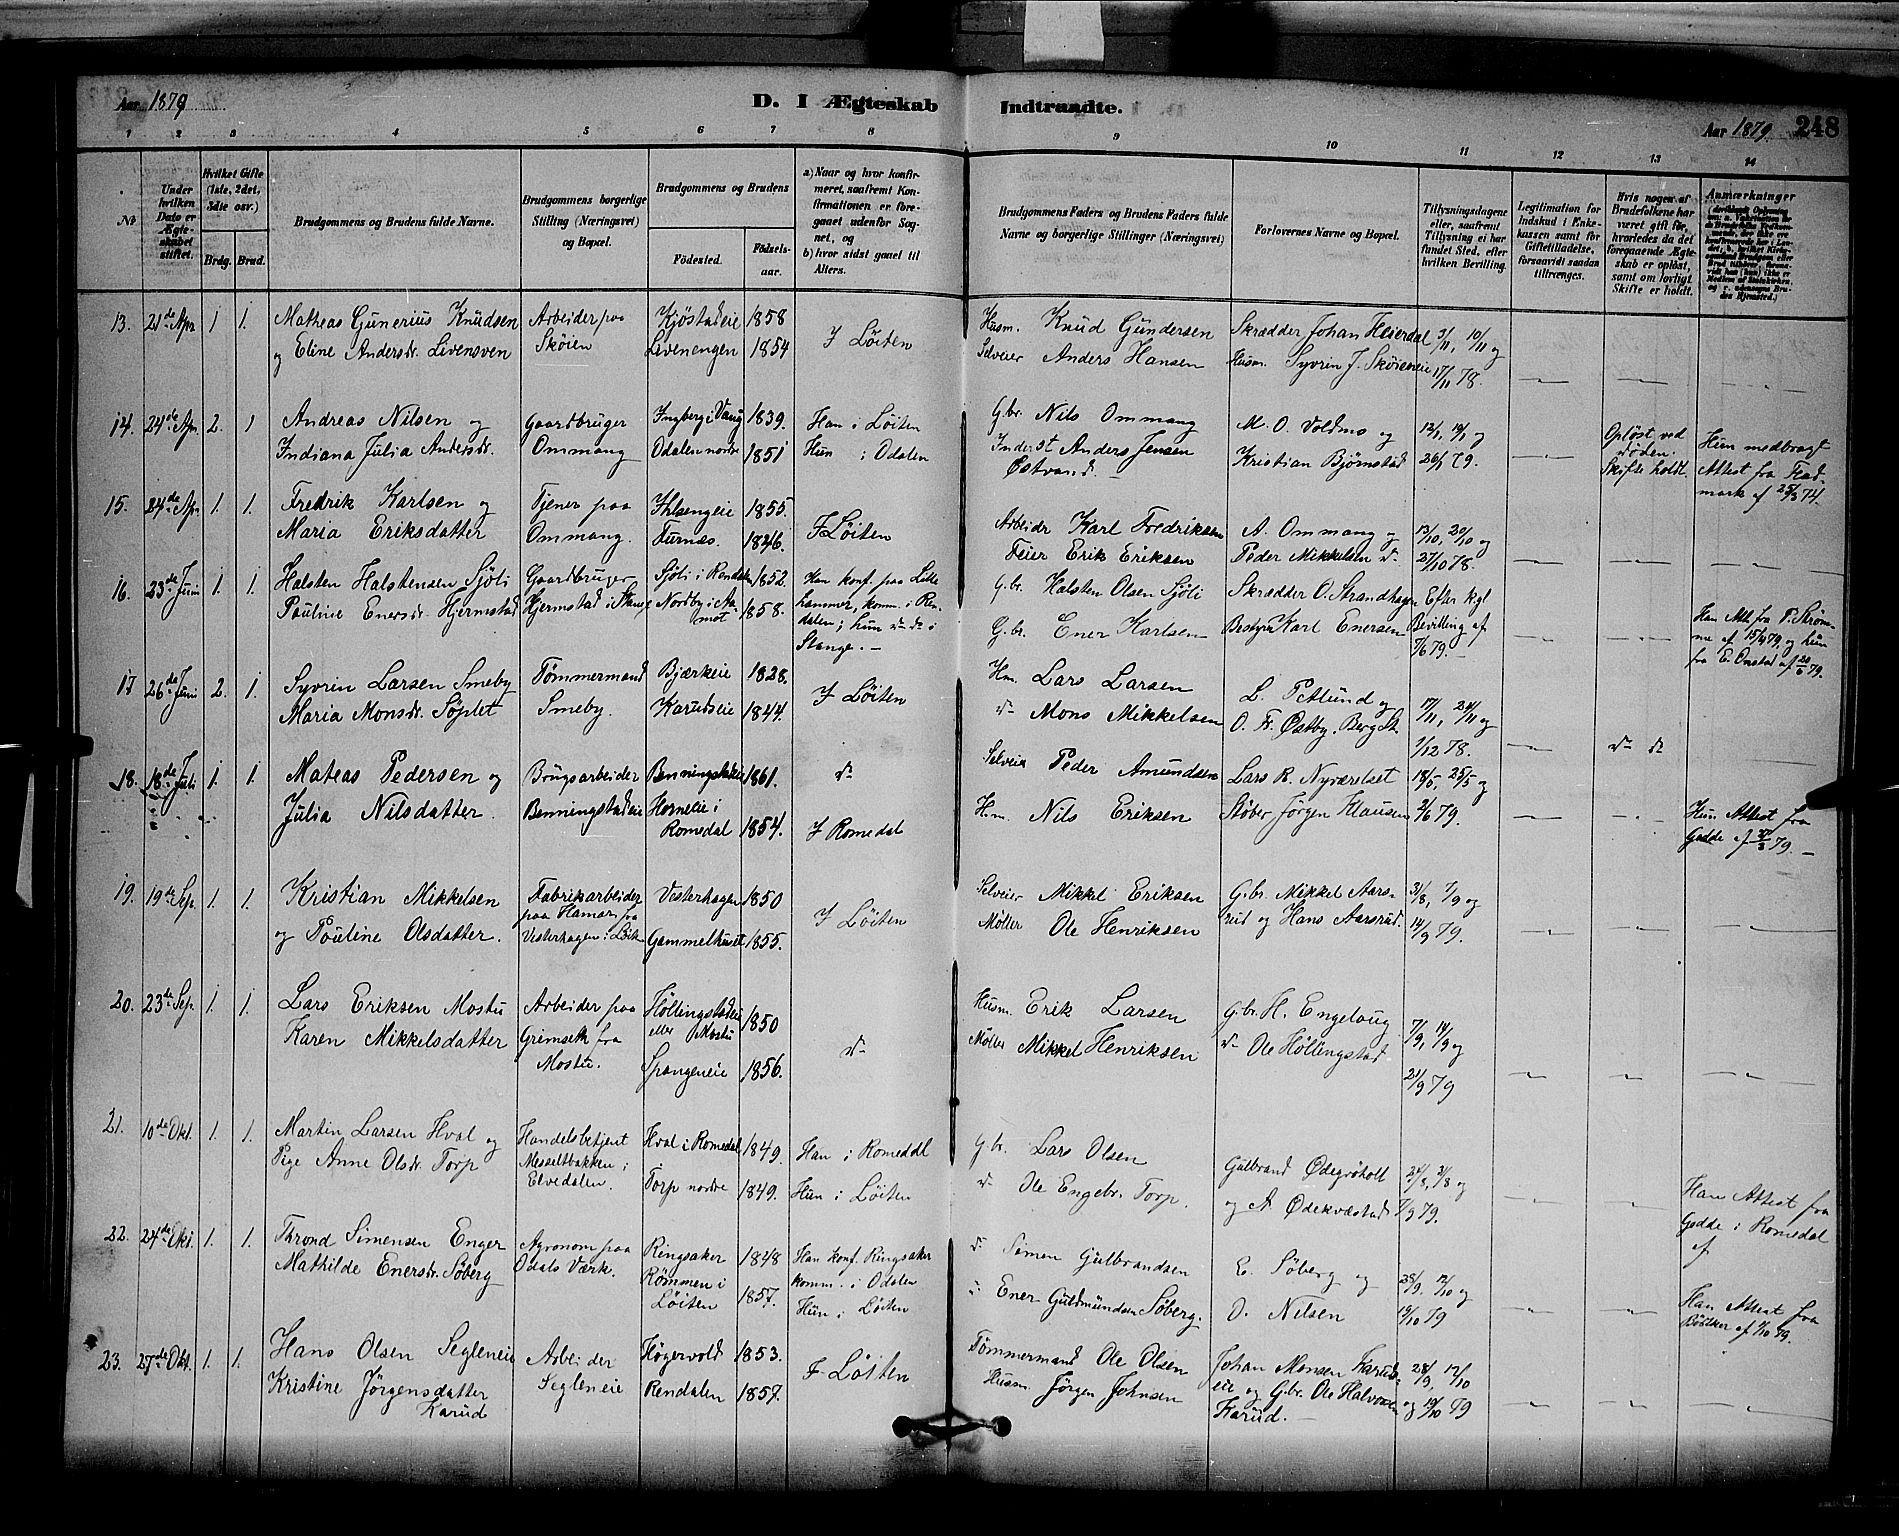 Aar 1879
D. I Ægteskab Indtraadte.
Aar 1879. 248
1 2 3 4 5 6 7 8 9 10 11 12 13 14
No
Under hvilken Dato er Ægteskabet stiftet.
Hvilket Gifte (1ste, 2det, 3die osv.)
Brdg. Brud.
Brudgommens og Brudens fulde Navne.
Brudgommens borgerlige Stilling (Næringsvei) og Bopæl.
Brudgommens og Brudens
Fødested.
Fødselsaar.
a) Naar og hvor konfirmeret, saafremt Konfirmationen er foregaaet udenfor Sognet, og
b) hvor sidst gaaet til Alters.
Brudgommens Faders og Brudens Faders fulde Navne og borgerlige Stillinger (Næringsvei)
Forlovernes Navne og Bopæl.
Tillysningsdagene eller, saafremt Tillysning ei har fundet Sted, efter hvilken Bevilling.
Legitimation for Indskud i Enkekassen samt for Giftetilladelse, forsaavidt saadan tiltrænges.
Hvis nogen af Brudefolkene har været gift før, hvorledes da det foregaaende Ægteskab er opløst, samt om lovligt Skifte er holdt.
Anmærkninger
13. 21de Apr. 1 1. Matheas Gunerius Knudsen Arbeider paa Kjøstadeie 1858 I Løiten Husm. Knud Gundersen Skrædder Johan Heierdal 3/11, 10/11 og
og Eline Andersdr. Livensven Skøien Livenengen 1854 Selveier Anders Hansen Husm. Syvrin J. Skøieneie 17/11 78.
14. 24de Apr. 2. 1 Andreas Nilsen og Gaardbruger Ingberg i Vang 1839. Han i Løiten G.br. Nils Ommang M. O. Voldmo og 12/1, 19/1 og Opløst ved Døden. Hun medbragt
Indiana Julia Andersdr. Ommang Odalen nordre 1851 Hun i Odalen Inderst Anders Jensen Østvand Kristian Bjørnstad 26/1 79. Skifte holdt. Attest fra Trad-
mark af 25/3 74.
15. 24de Apr. 1. 1. Fredrik Karlsen og Tjener paa Ihlsengeie 1855. I Løiten Arbeidr Karl Fredriksen A. Ommang og 13/10, 20/10 og
Maria Eriksdatter Ommang. Furnæs. 1846. Feier Erik Eriksen Peder Mikkelsen do 27/10 78.
16. 23de Juni 1. 1. Halsten Halstensen Sjøli Gaardbruger Sjøli i Rendalen 1852. Han konf. paa Lille- G.br. Halsten Olsen Sjøli Skrædder O. Strandhagen Efter kgl
Pauline Enersdr. Hjermstad Hjermstad i Stange Nordby i Aamot 1858. hammer, komm. i Ren- G.br. Ener Karlsen Bestyrer Karl Enersen Bevilling af Han Att. fra P. Strøm-
dalen; hun do do i 7/6 79. me af 15/4 79, og hun
Stange. fra E. Onstad af 20/6 79.
17 26de Juni 2. 1. Syvrin Larsen Smeby Tømmermand Bjærkeie 1828. I Løiten Hm. Lars Larsen L. Petlund og 17/11, 24/11 og
Maria Monsdr. Søplet Smeby. Karudseie 1844. do Mons Mikkelsen O. Fr. Østby, Berg 1/12 78. do do
18. 18de Juli 1. 1. Mateas Pedersen og Brugsarbeider Benningstadeie 1861. do Selveier Peder Amundsen Lars R. Nyværelset 18/5, 25/5 og
Julia Nilsdatter. Benningstadeie Horneeie i Romedal 1854. I Romedal Hm. Nils Eriksen Støber Jørgen Klausen 2/6 79. Hun Attest fra
Gødde af 79.
19. 19de Sep. 1. 1. Kristian Mikkelsen Fabrikarbeider paa Hamar, fra Vesterhagen 1850 I Løiten Selveier Mikkel Eriksen G.br. Mikkel Aars- 31/8, 7/9 og
og Pouline Olsdatter. Vesterhagen i Løiten Gammelhuset 1855. Møller Ole Henriksen rud og Hans Aarsrud. 14/9 79.
20. 23de Sep. 1. 1. Lars Eriksen Mostu Arbeider paa Høllingstadeie eller Mostu 1850 do Husm. Erik Larsen G.br. H. Engeloug 7/9, 14/9 og
Karen Mikkelsdatter Grimseth fra Mostu. Spangeneie 1856. Møller Mikkel Henriksen do Ole Høllingstad 21/9 79
21. 10de Okt. 1. 1. Martin Larsen Hval og Handelsbetjent Hval i Romedal 1849. Han i Romedal G.br. Lars Olsen Gulbrand Ødegrøholt 24/8, 31/8 og
Pige Anne Olsdr. Torp Messeltbakken i Elvedalen. Torp nordre 1849. Hun i Løiten do Ole Engebr. Torp. og A Ødekvæstad 7/9 79. Han Attest fra
Gødde i Romedal
af
22. 24de Okt. 1. 1. Thrond Simensen Enger Agronom paa Ringsaker 1848 Han konf. Ringsaker do Simen Gulbrandsen E. Søberg og 28/9. 12/10 og
Mathilde Enersdr. Søberg Odals Værk. Rømmen i Løiten 1857. komm. i Odalen Ener Guldmundsen Søberg. O. Nilsen 19/10 79 Han Attest fra
Hun i Løiten af 79.
23. 27de Okt. 1. 1. Hans Olsen Segleneie Arbeider Høgervold 1853. I Løiten Tømmermand Ole Olsen Johan Monsen Karuds- 28/9, 12/10
Kristine Jørgensdatter Karud Segleneie Rendalen 1857. Husm. Jørgen Johnsen eie og G.br. Ole Halvorsen Karud. og 19/10 79